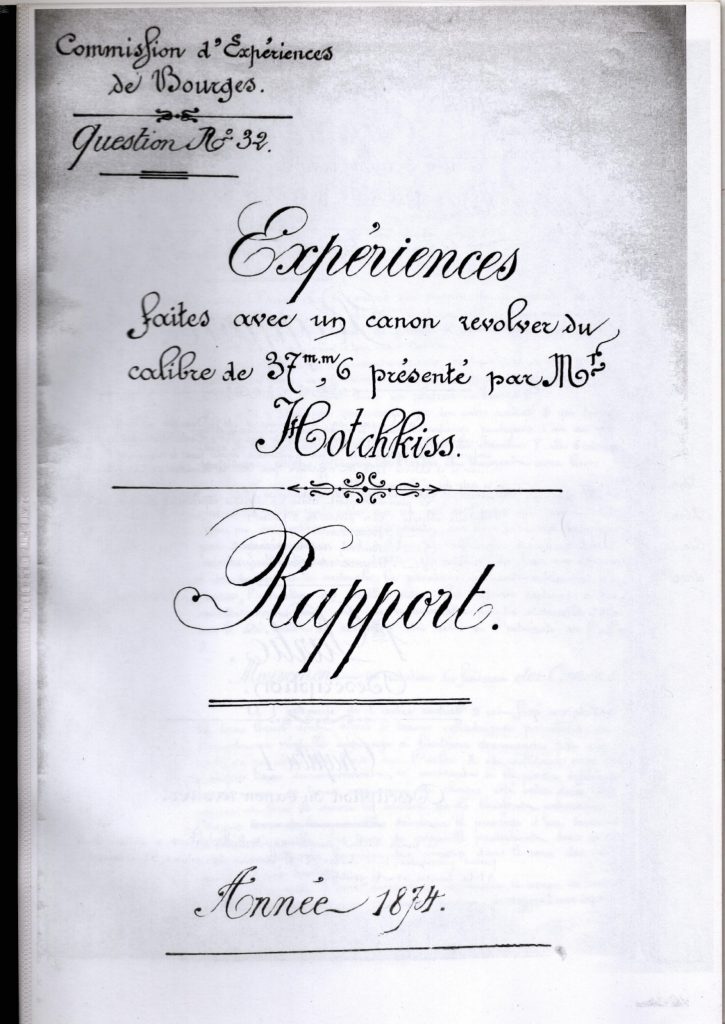 Commission d'Expériences
de Bourges.
Question N.º 32.
Expériences
faites avec un canon revolver du
calibre de 37m.m,6 présenté par Mr.
Hotchkiss.
Rapport.
Année 1874.